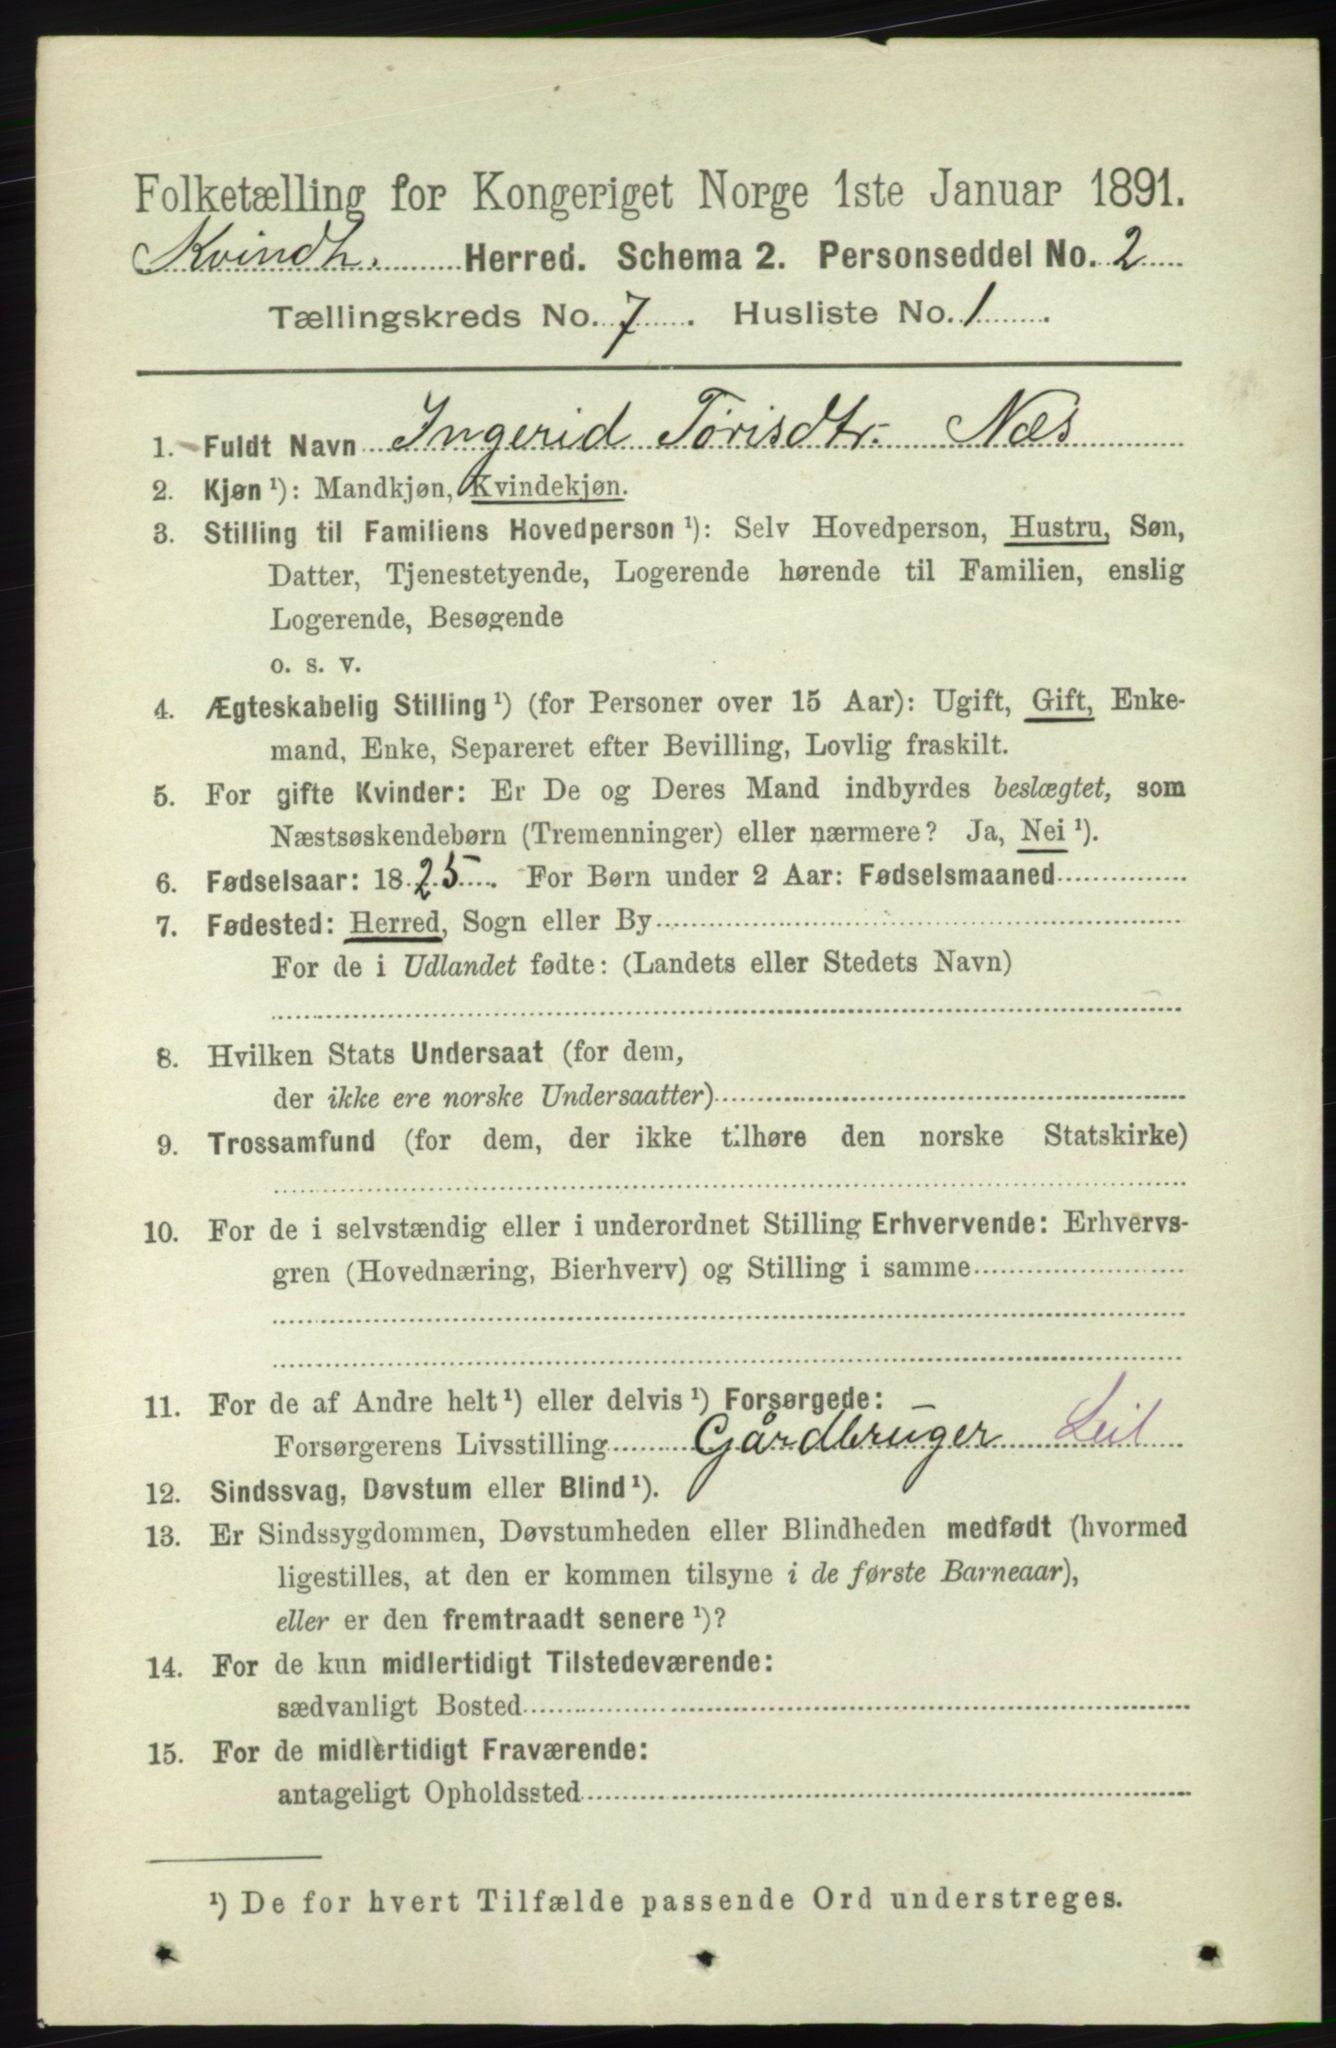 Folketælling for Kongeriget Norge 1ste Januar 1891.
Kvindh. Herred. Schema 2. Personseddel No. 2
Tællingskreds No. 7. Husliste No. 1.
1. Fuldt Navn Ingerid Tørisdtr. Næs
2. Kjøn ¹): Mandkjøn, Kvindekjøn.
3. Stilling til Familiens Hovedperson ¹): Selv Hovedperson, Hustru, Søn,
Datter, Tjenestetyende, Logerende hørende til Familien, enslig
Logerende, Besøgende
o. s. v.
4. Ægteskabelig Stilling ¹) (for Personer over 15 Aar): Ugift, Gift, Enke-
mand, Enke, Separeret efter Bevilling, Lovlig fraskilt.
5. For gifte Kvinder: Er De og Deres Mand indbyrdes beslægtet, som
Næstsøskendebørn (Tremenninger) eller nærmere? Ja, Nei ¹).
6. Fødselsaar: 1825. For Børn under 2 Aar: Fødselsmaaned
7. Fødested: Herred, Sogn eller By
For de i Udlandet fødte: (Landets eller Stedets Navn)
8. Hvilken Stats Undersaat (for dem,
der ikke ere norske Undersaatter)
9. Trossamfund (for dem, der ikke tilhøre den norske Statskirke)
10. For de i selvstændig eller i underordnet Stilling Erhvervende: Erhvervs-
gren (Hovednæring, Bierhverv) og Stilling i samme
11. For de af Andre helt ¹) eller delvis ¹) Forsørgede:
Forsørgerens Livsstilling Gårdbruger Leil
12. Sindssvag, Døvstum eller Blind ¹).
13. Er Sindssygdommen, Døvstumheden eller Blindheden medfødt (hvormed
ligestilles, at den er kommen tilsyne i de første Barneaar),
eller er den fremtraadt senere ¹)?
14. For de kun midlertidigt Tilstedeværende:
sædvanligt Bosted
15. For de midlertidigt Fraværende:
antageligt Opholdssted
¹) De for hvert Tilfælde passende Ord understreges.